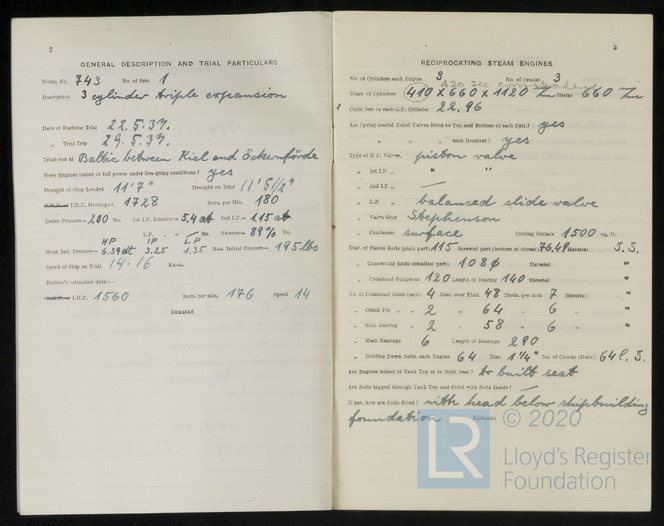 2
GENERAL DESCRIPTION AND TRIAL PARTICULARS
Works No. 743 No. of Sets 1
Description 3 cylinder triple expansion
Date of Harbour Trial 22.5.37.
„ Trial Trip 29.5.37.
Trials run at Baltic between Kiel and Eckernförde
Were Engines tested at full power under Sea-going conditions? yes
Draught of Ship Loaded 11'7" Draught on Trial 11'5½"
I.H.P. Developed 1728 Revs. per Min. 180
Boiler Pressure 200 lbs. 1st I.P. Receiver 5,4 at 2nd I.P. 1.15 at
L.P. — lbs. Vacuum 89% lbs.
HP IP LP
Mean Ind. Pressure 6.39 at 3.25 1.35 Max. Initial Pressure 195 lbs
Speed of Ship on Trial 14-16 Knots.
Builder's estimated data:—
I.H.P. 1560 Revs. per min. 176 Speed 14
REMARKS
3
RECIPROCATING STEAM ENGINES
No. of Cylinders each Engine 3 No. of Cranks 3
420 see
Diars. of Cylinders 410 x 660 x 1120 Stroke 660
Cubic feet in each L.P. Cylinder 22.96
Are Spring-loaded Relief Valves fitted to Top and Bottom of each Cyld.? yes
„ „ „ each Receiver? yes
Type of H.P. Valves, piston valve
„ 1st I.P. „ " "
„ 2nd I.P. „ —
„ L.P. „ balanced slide valve
„ Valve Gear Stephenson
„ Condenser surface Cooling Surface 1500 sq. ft.
Diar. of Piston Rods (plain part) 115 Screwed part (bottom of thread) 76.49 Material S.S.
„ Connecting Rods (smallest part) 108 ϕ Material "
„ Crosshead Gudgeons 120 Length of Bearing 140 Material "
No. of Crosshead Bolts (each) 4 Diar. over Thrd. 48 Thrds. per inch 7 Material "
„ Crank Pin „ „ 2 „ 64 „ 6 „ "
„ Main Bearing „ 2 „ 58 „ 6 „ "
„ Main Bearings 6 Length of Bearings 290
„ Holding Down Bolts, each Engine 64 Diar. 1¼" No. of Chocks (Metal) 64 P. S.
Are Engines bolted to Tank Top or to Built Seat? to built seat
Are Bolts tapped through Tank Top and fitted with Nuts Inside? —
If not, how are Bolts fitted? with head below shipbuilding
foundation REMARKS
© 2020
LR
Lloyd's Register
Foundation